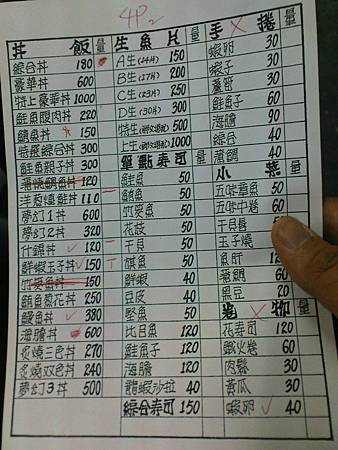 4P2
丼 飯 量
綜合丼 180
豪華丼 600
特上豪華丼 1000
鮭魚腹肉丼 220
鯛魚丼 150
特選綜合丼 300
鮭魚親子丼 300
120
洋蔥燒鮭丼 110
夢幻1丼 600
夢幻2丼 320
什錦丼 120
鮮蝦玉子丼 150
竹筴魚丼 150
鮪魚蔥花丼 250
鰻魚丼 380
海膽丼 600
炙燒三色丼 270
炙燒双色丼 240
夢幻3丼 500
生魚片 量
A生(14片) 150
B生(17片) 200
C生(23片) 250
D生(30片) 300
特生 500
上生 1000
單點壽司 量
鮭魚 50
鯛魚 50
竹筴魚 50
花枝 50
干貝 50
旗魚 50
鮮蝦 40
豆皮 40
堅魚 50
比目魚 120
鮭魚子 120
海膽 120
龍蝦沙拉 40
綜合壽司 150
手捲 量
蝦卵 30
蝦子 30
蘆筍 30
鮭魚子 60
海膽 90
綜合 40
蒲鯛 40
小菜 量
五味章魚 50
五味中卷 60
干貝唇 50
玉子燒
魚肝
蒲鯛 60
黑豆 20
卷物 量
花壽司 120
鐵火卷 60
肉鬆 30
黃瓜 30
蝦卵 40